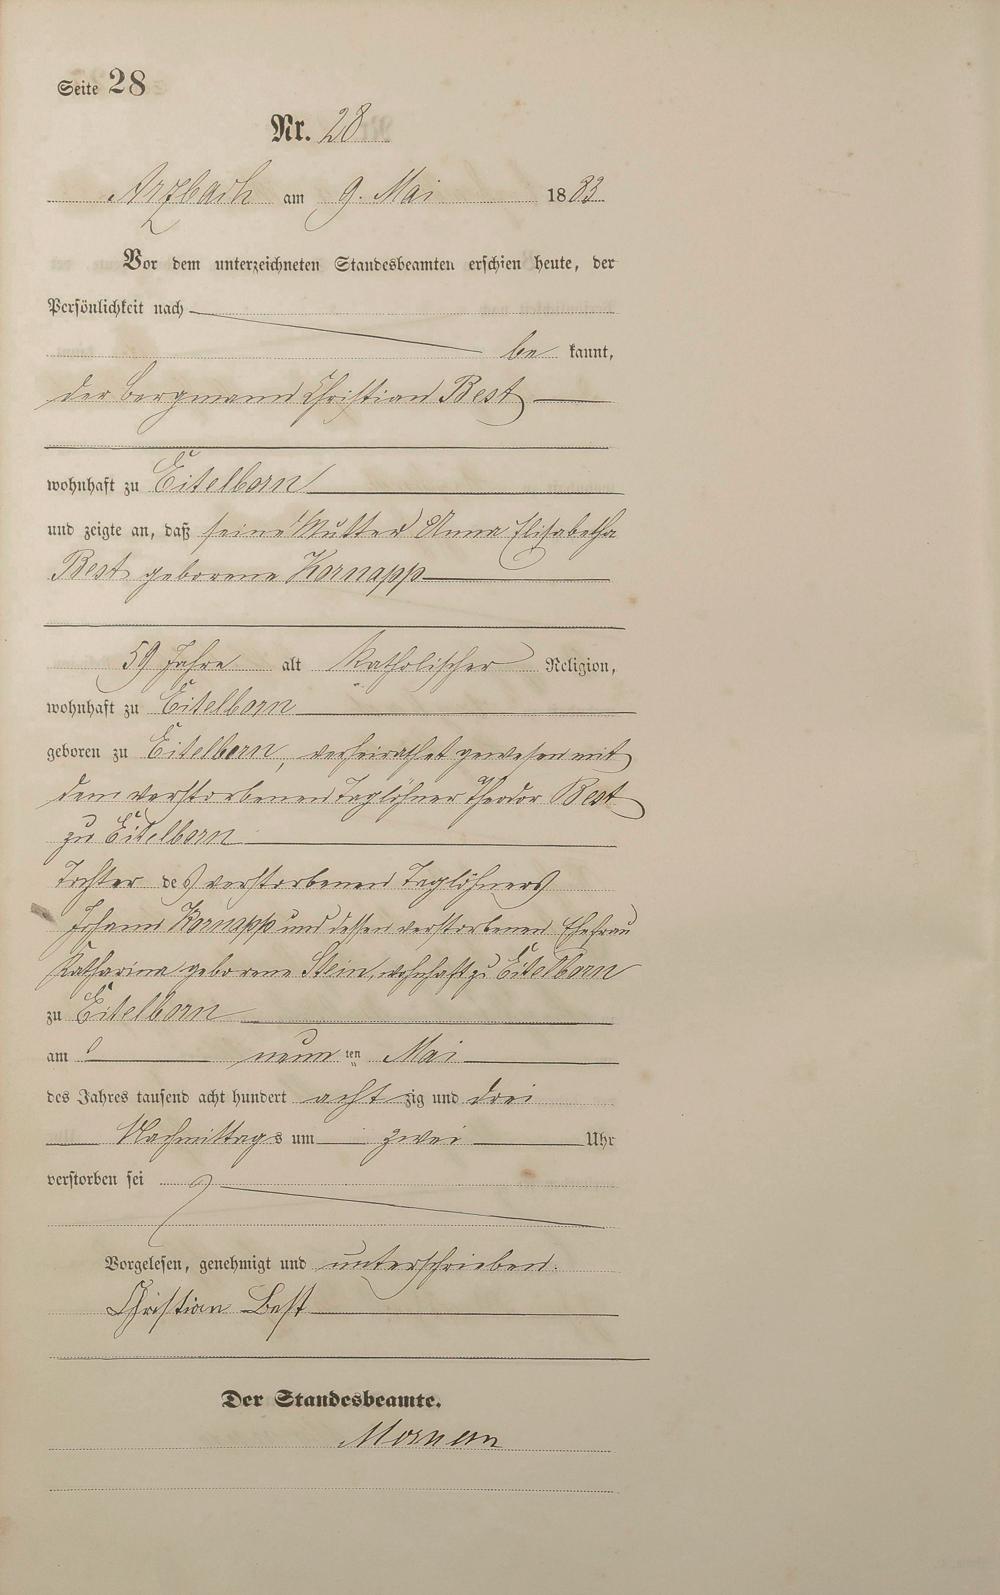 Seite 28
Nr. 28
Arzbach am 9. Mai 1883
Vor dem unterzeichneten Standesbeamten erschien heute, der
Persönlichkeit nach
be kannt,
der Bergmann Christian Best
wohnhaft zu Eitelborn
und zeigte an, daß seine Mutter Anna Elisabetha
Best geborene Kornapp
59 Jahre alt katholischer Religion,
wohnhaft zu Eitelborn
geboren zu Eitelborn, verheirathet gewesen mit
dem verstorbenen Taglöhner Theodor Best
zu Eitelborn
Tochter des verstorbenen Taglöhners
Johann Kornapp und dessen verstorbenen Ehefrau
Katharina geborene Stein, wohnhaft zu Eitelborn
zu Eitelborn
am neun ten Mai
des Jahres tausend acht hundert acht zig und drei
Nachmittags um zwei Uhr
verstorben sei
Vorgelesen, genehmigt und unterschrieben.
Christian Best
Der Standesbeamte.